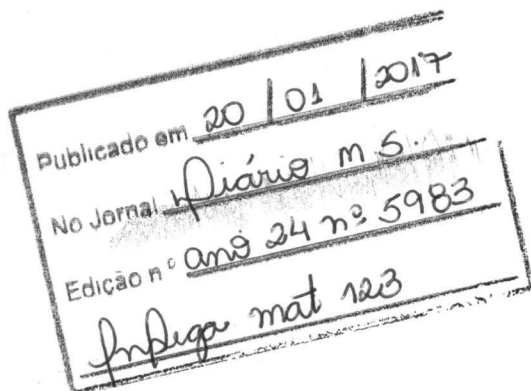 Publicado em 20 / 01 / 2017
No Jornal Diário MS.
Edição nº ano 24 nº 5983
mat 123